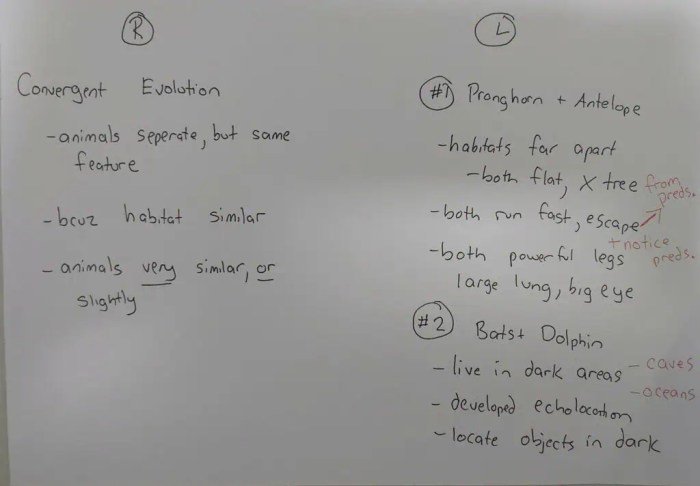 R
Convergent Evolution
-animals seperate, but same
feature
-bcuz habitat similar
-animals very similar, or
slightly
L
#1 Pronghorn + Antelope
-habitats far apart
-both flat, X tree
-both run fast, escape from preds.
-both powerful legs + notice preds.
large lung, big eye
#2 Bats + Dolphin
-live in dark areas - caves
- oceans
- developed echolocation
- locate objects in dark